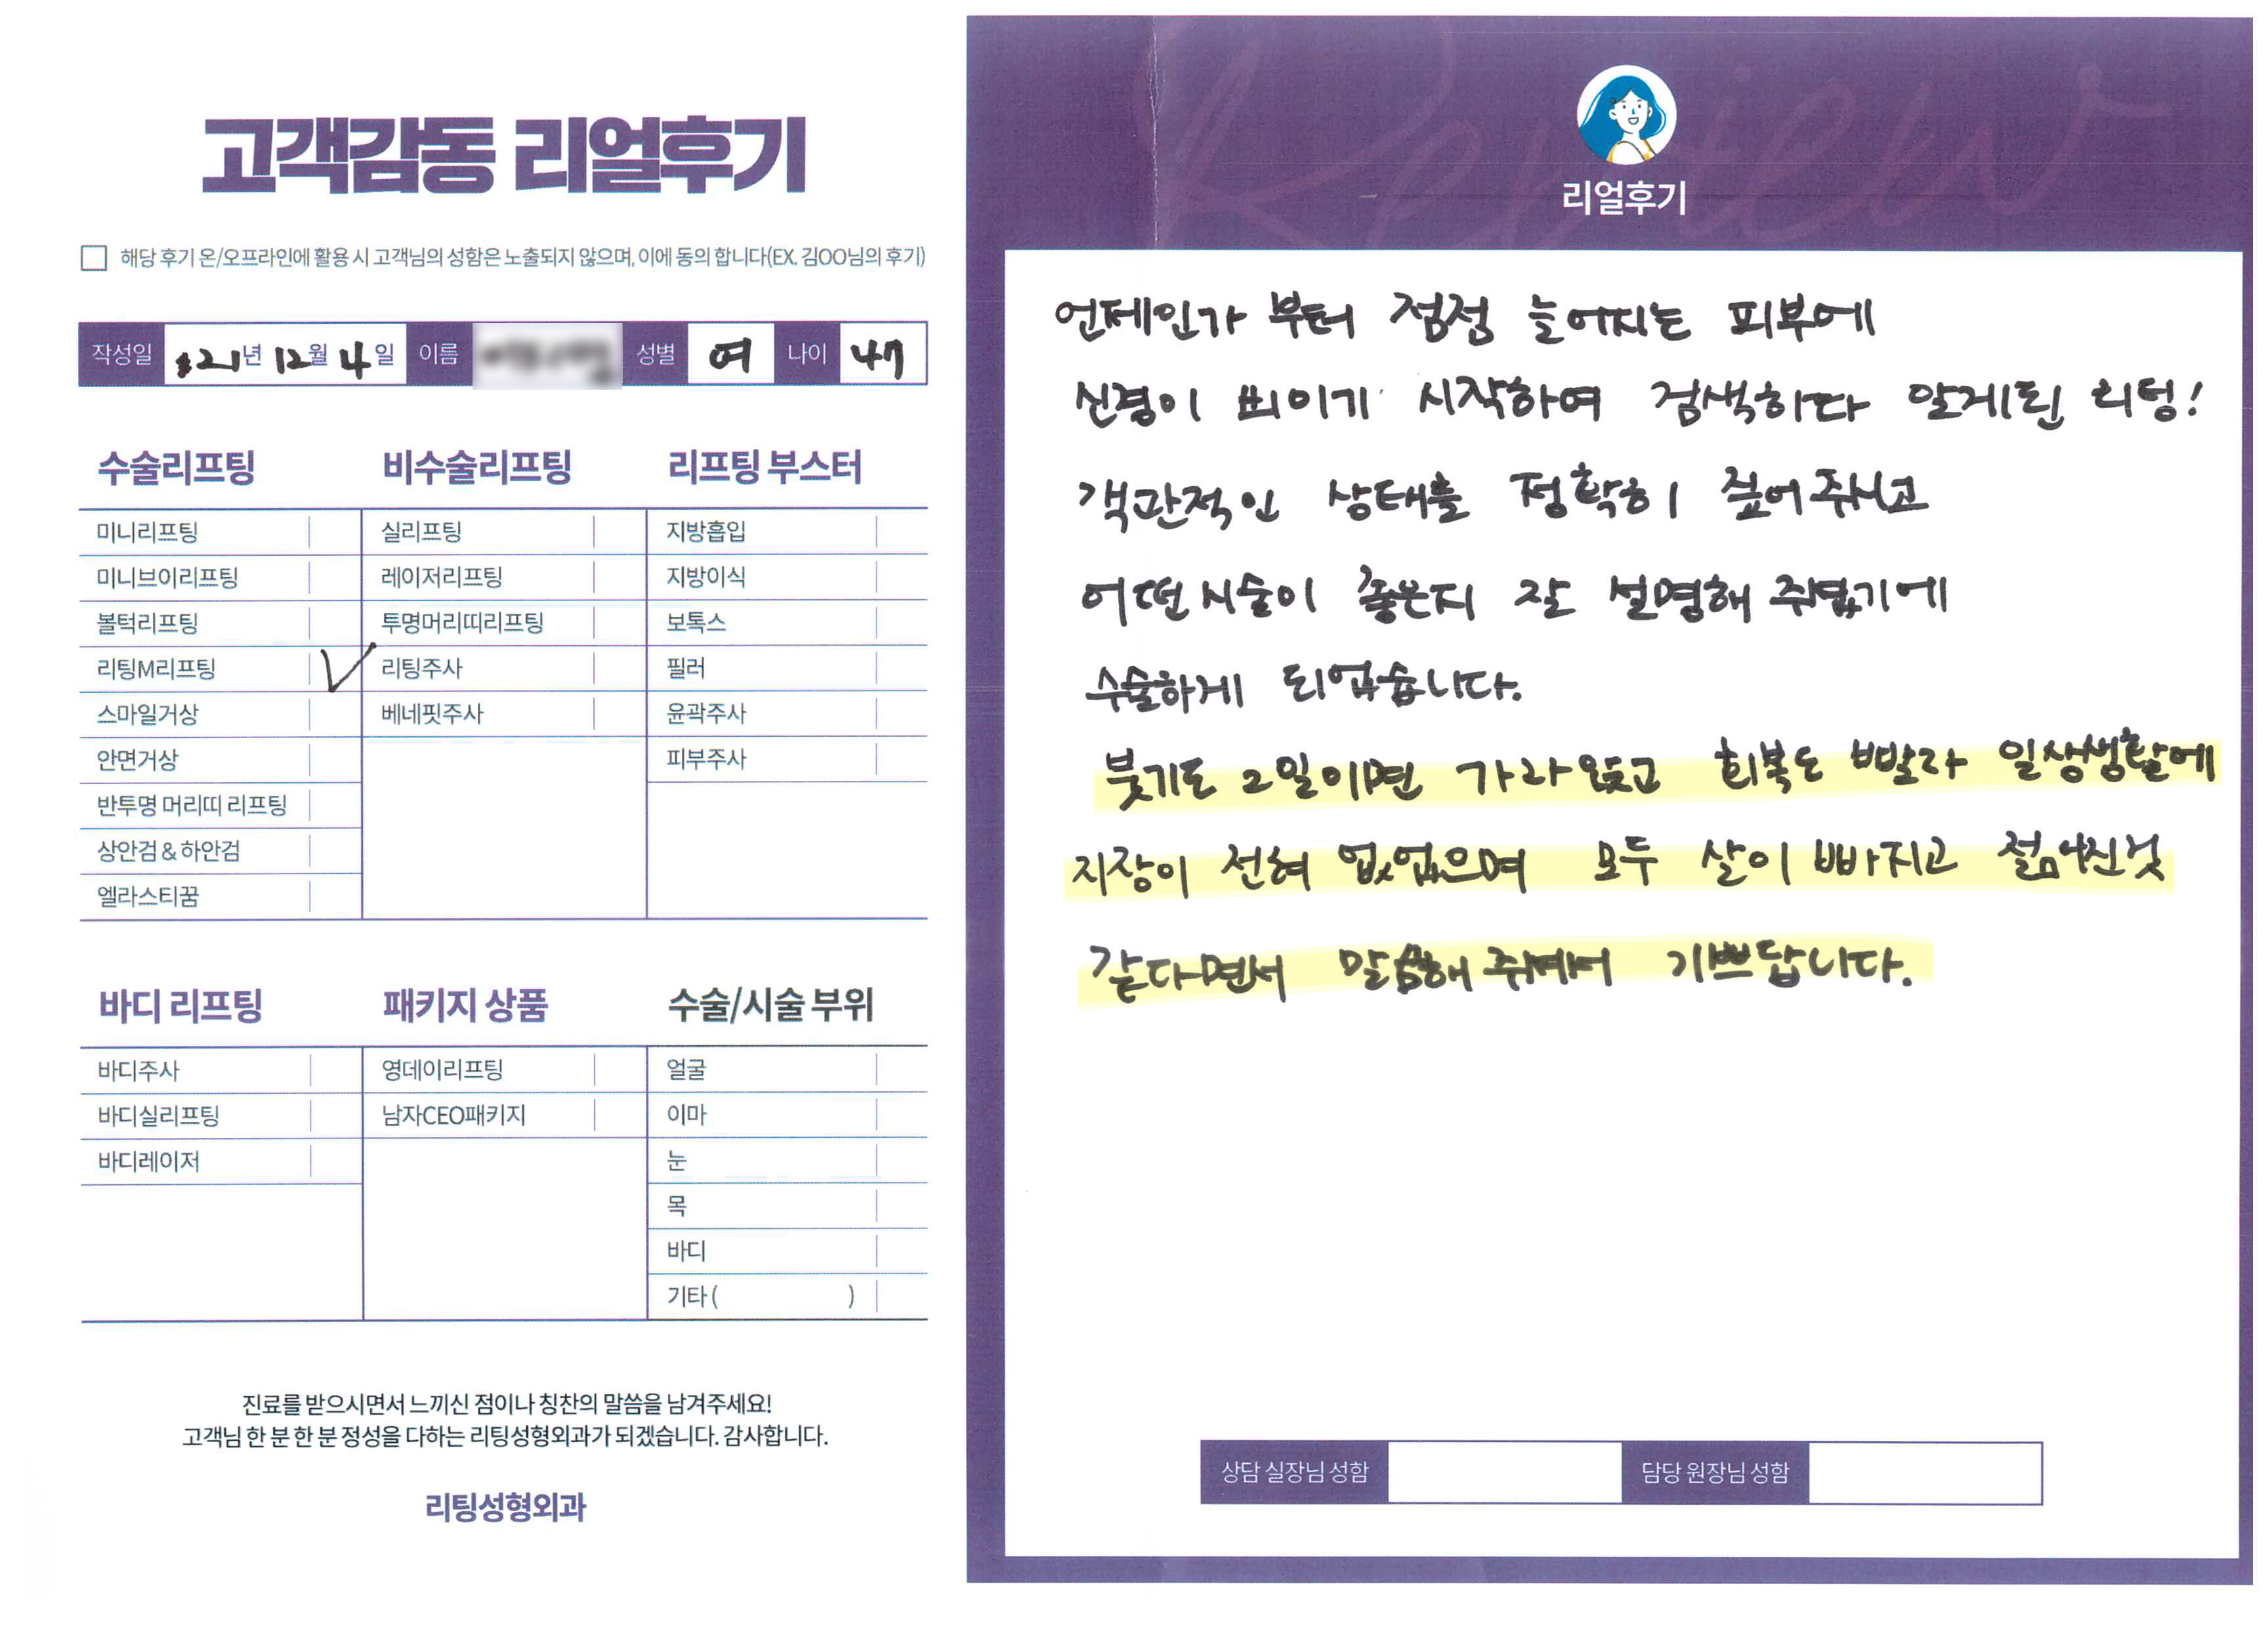 고객감동 리얼후기
해당 후기 온/오프라인에 활용 시 고객님의 성함은 노출되지 않으며, 이에 동의 합니다(EX. 김OO님의 후기)
작성일 21년 12월 4일 이름 성별 여 나이 47
수술리프팅
미니리프팅
미니브이리프팅
볼턱리프팅
리팅M리프팅 ✓
스마일거상
안면거상
반투명 머리띠 리프팅
상안검 & 하안검
엘라스티꿈
비수술리프팅
실리프팅
레이저리프팅
투명머리띠리프팅
리팅주사
베네핏주사
리프팅 부스터
지방흡입
지방이식
보톡스
필러
윤곽주사
피부주사
바디 리프팅
바디주사
바디실리프팅
바디레이저
패키지 상품
영데이리프팅
남자CEO패키지
수술/시술 부위
얼굴
이마
눈
목
바디
기타 ( )
진료를 받으시면서 느끼신 점이나 칭찬의 말씀을 남겨주세요!
고객님 한 분 한 분 정성을 다하는 리팅성형외과가 되겠습니다. 감사합니다.
리팅성형외과
Review
리얼후기
언제인가 부터 점점 늘어지는 피부에
신경이 쓰이기 시작하여 검색하다 알게된 리팅!
객관적인 상태를 정확히 짚어주시고
어떤 시술이 좋은지 잘 설명해 주셨기에
수술하게 되었습니다.
붓기도 2일이면 가라앉고 회복도 빨라 일상생활에
지장이 전혀 없었으며 모두 살이 빠지고 젊어진것
같다면서 말씀해 주셔서 기쁘답니다.
상담 실장님 성함 담당 원장님 성함